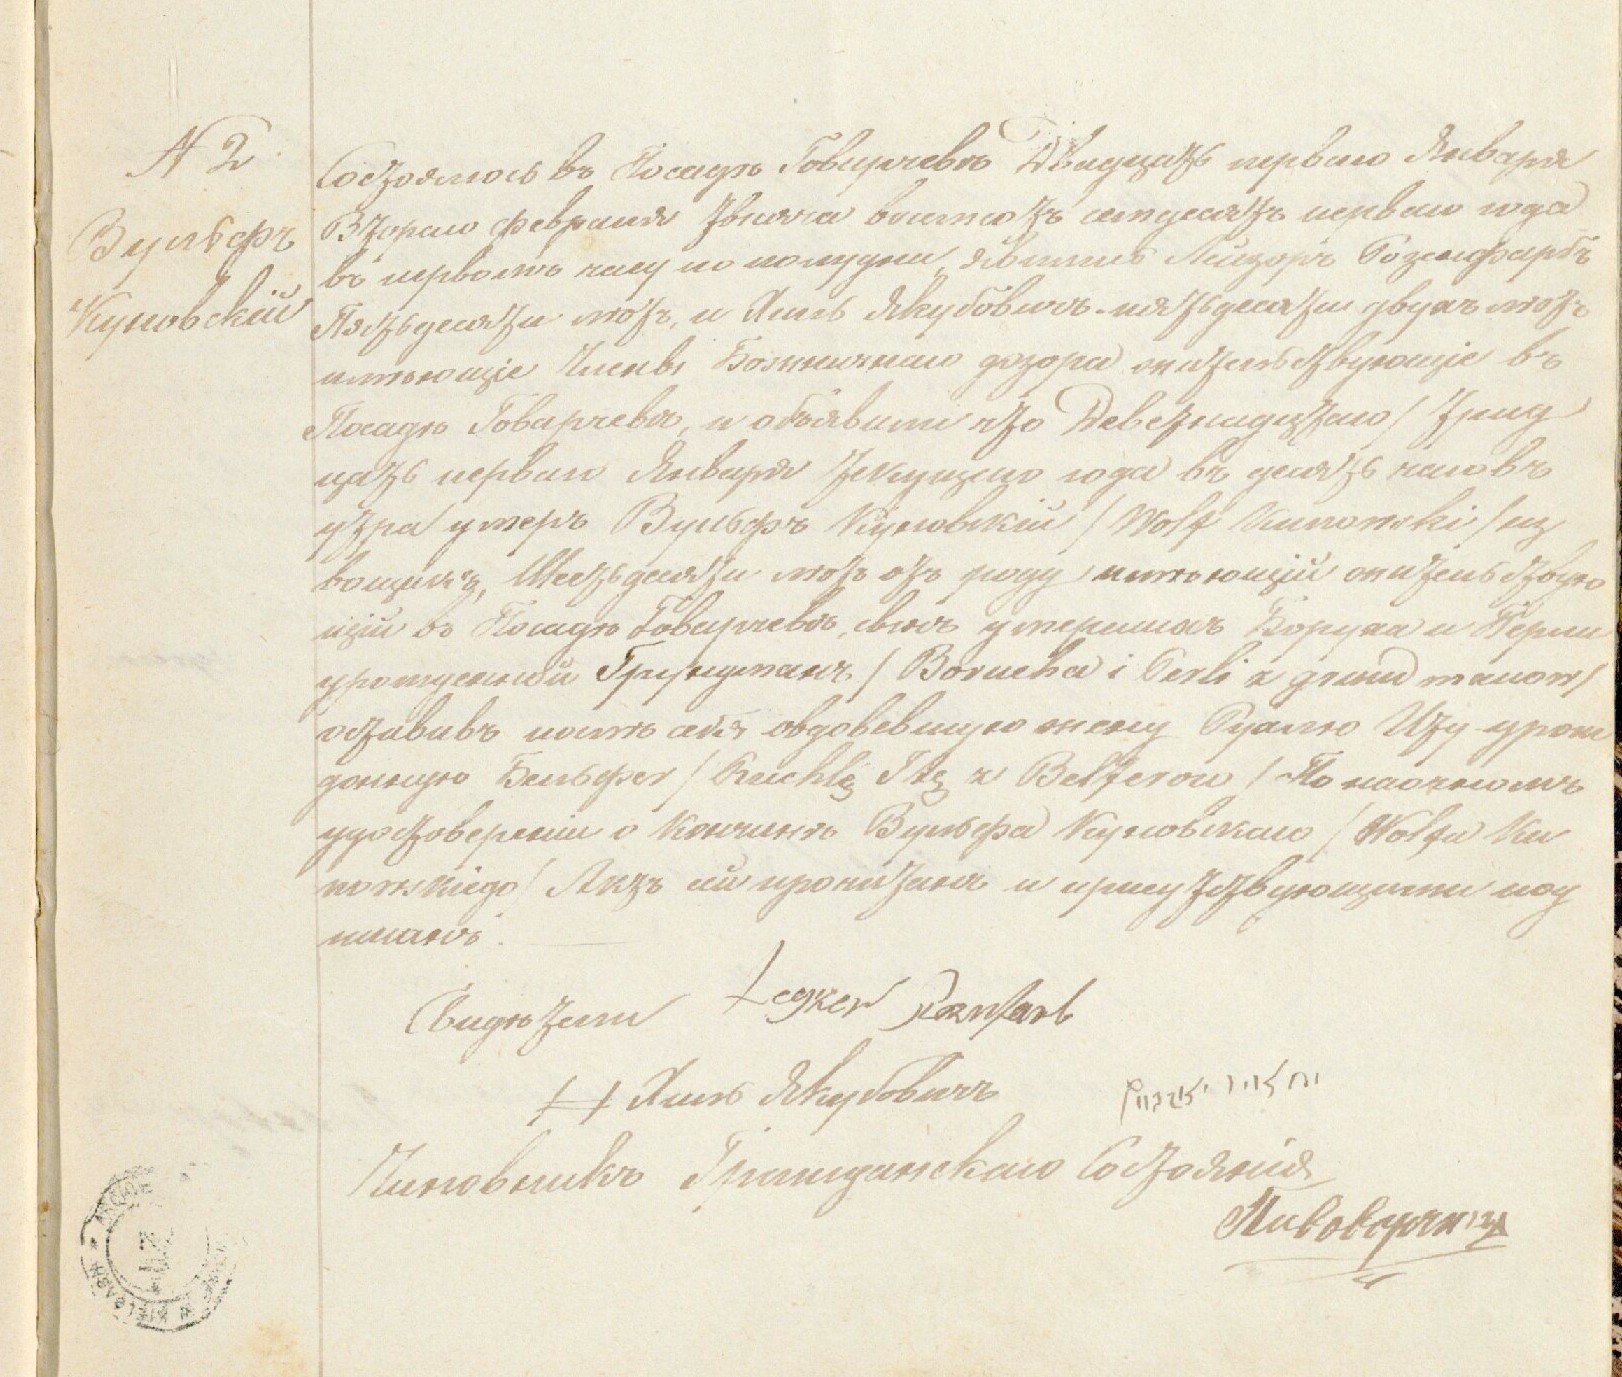 № 2
Вульфъ
Куновскій
Состоялось въ Посадѣ Говарчевѣ Двадцать перваго Января
Втораго февраля тысяча восемсотъ семдесятъ перваго года
въ первомъ часу по полудни, явились Лейзоръ Розенфарбъ
Пятьдесяти лѣтъ, и Хиль Якубовичъ пятьдесяти двухъ лѣтъ
имѣющіе Члены Божничнаго дозора жительствующіе въ
Посадѣ Говарчевѣ, и объявили что Деветнадцтаго / трид
цать перваго Января текущаго года въ десять часовъ
утра умеръ Вульфъ Куновскій / Wolf Kunowski / из
вощикъ, Шестьдесяти лѣтъ отъ роду имѣющій жительствую
щій въ Посадѣ Говарчевѣ, сынъ умершихъ Боруха и Перли
урожденной Грундманъ / Borucha i Perli z grundmanow /
оставивъ послѣ себя овдовевшую жену Рухлю Иту урож
донную Бельфер / Ruchlę Itę z Belferow / По наочномъ
удостовереніи о Кончинѣ Вульфа Куновскаго / Wolfa Ku
nowskiego / Актъ сей прочитанъ и присутствующими под
писанъ.
Свидѣтели Leyzer Rozenfarb
Хиль Якубовичъ
Чиновникъ Гражданскаго Состоянія